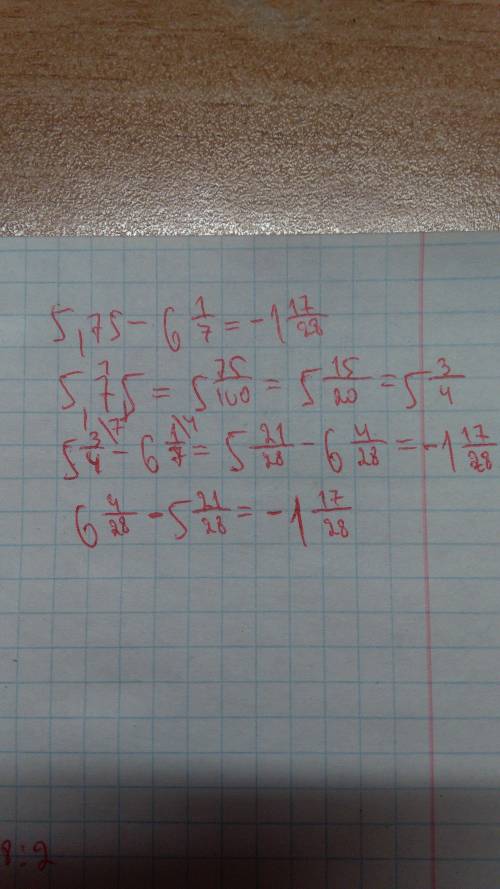 5,75 - 6 1/7 = -1 17/28
5,75 = 5 75/100 = 5 15/20 = 5 3/4
5 3/4 \7 - 6 1/7 \4 = 5 21/28 - 6 4/28 = -1 17/28
6 4/28 - 5 21/28 = -1 17/28
8:2